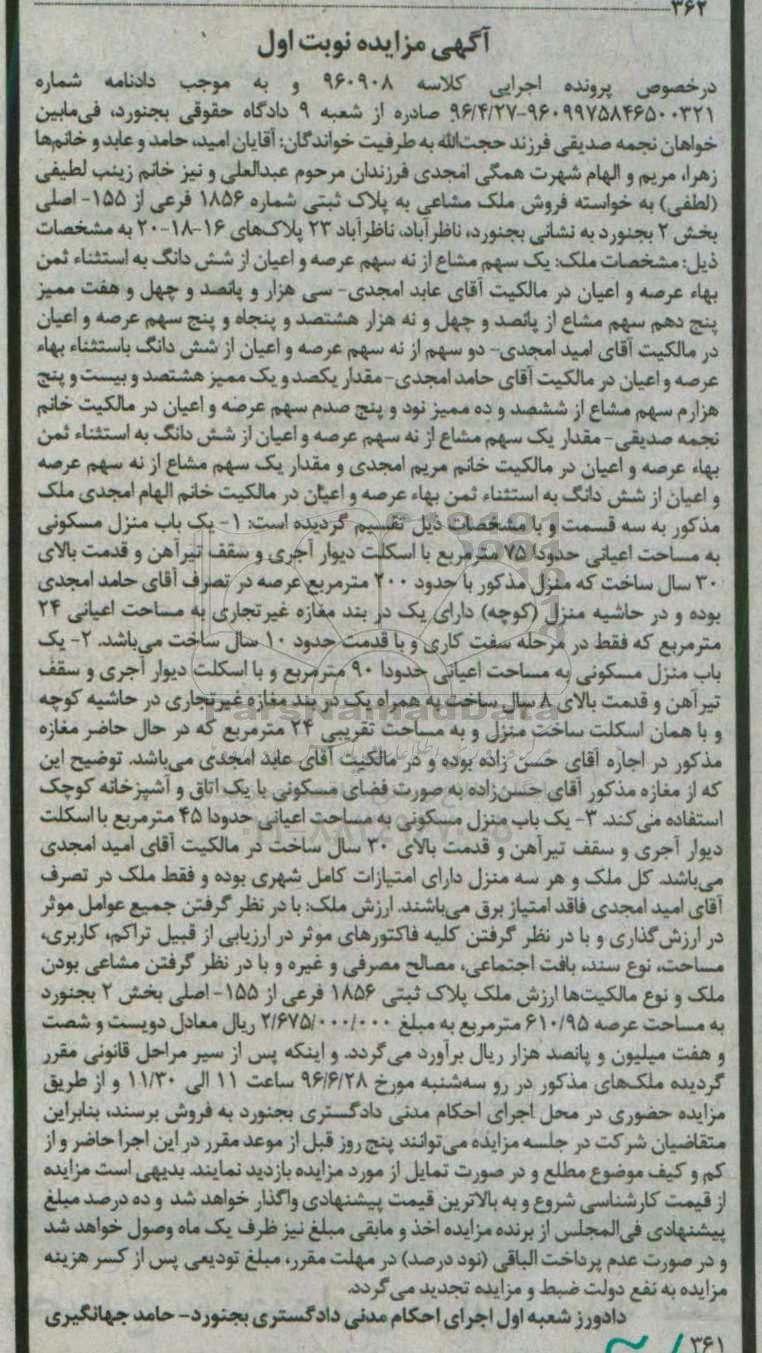 ۳۶۲
آگهی مزایده نوبت اول
درخصوص پرونده اجرایی کلاسه ۹۶۰۹۰۸ و به موجب دادنامه شماره
۹۶۰۹۹۷۵۸۴۶۵۰۰۳۲۱-۹۶/۴/۲۷ صادره از شعبه ۹ دادگاه حقوقی بجنورد، فی‌مابین
خواهان نجمه صدیقی فرزند حجت‌الله به طرفیت خواندگان: آقایان امید، حامد و عابد و خانم‌ها
زهرا، مریم و الهام شهرت همگی امجدی فرزندان مرحوم عبدالعلی و نیز خانم زینب لطیفی
(لطفی) به خواسته فروش ملک مشاعی به پلاک ثبتی شماره ۱۸۵۶ فرعی از ۱۵۵- اصلی
بخش ۲ بجنورد به نشانی بجنورد، ناظرآباد، ناظرآباد ۲۳ پلاک‌های ۱۶-۱۸-۲۰ به مشخصات
ذیل: مشخصات ملک: یک سهم مشاع از نه سهم عرصه و اعیان از شش دانگ به استثناء ثمن
بهاء عرصه و اعیان در مالکیت آقای عابد امجدی- سی هزار و پانصد و چهل و هفت ممیز
پنج دهم سهم مشاع از پانصد و چهل و نه هزار هشتصد و پنجاه و پنج سهم عرصه و اعیان
در مالکیت آقای امید امجدی- دو سهم از نه سهم عرصه و اعیان از شش دانگ باستثناء بهاء
عرصه و اعیان در مالکیت آقای حامد امجدی- مقدار یکصد و یک ممیز هشتصد و بیست و پنج
هزارم سهم مشاع از ششصد و ده ممیز نود و پنج صدم سهم عرصه و اعیان در مالکیت خانم
نجمه صدیقی- مقدار یک سهم مشاع از نه سهم عرصه و اعیان از شش دانگ به استثناء ثمن
بهاء عرصه و اعیان در مالکیت خانم مریم امجدی و مقدار یک سهم مشاع از نه سهم عرصه
و اعیان از شش دانگ به استثناء ثمن بهاء عرصه و اعیان در مالکیت خانم الهام امجدی ملک
مذکور به سه قسمت و با مشخصات ذیل تقسیم گردیده است: ۱- یک باب منزل مسکونی
به مساحت اعیانی حدودا ۷۵ مترمربع با اسکلت دیوار آجری و سقف تیرآهن و قدمت بالای
۳۰ سال ساخت که منزل مذکور با حدود ۲۰۰ مترمربع عرصه در تصرف آقای حامد امجدی
بوده و در حاشیه منزل (کوچه) دارای یک در بند مغازه غیرتجاری به مساحت اعیانی ۲۴
مترمربع که فقط در مرحله سفت کاری و با قدمت حدود ۱۰ سال ساخت می‌باشد. ۲- یک
باب منزل مسکونی به مساحت اعیانی حدودا ۹۰ مترمربع و با اسکلت دیوار آجری و سقف
تیرآهن و قدمت بالای ۸ سال ساخت به همراه یک در بند مغازه غیرتجاری در حاشیه کوچه
و با همان اسکلت ساخت منزل و به مساحت تقریبی ۲۴ مترمربع که در حال حاضر مغازه
مذکور در اجاره آقای حسن زاده بوده و در مالکیت آقای عابد امجدی می‌باشد. توضیح این
که از مغازه مذکور آقای حسن‌زاده به صورت فضای مسکونی با یک اتاق و آشپزخانه کوچک
استفاده می‌کند. ۳- یک باب منزل مسکونی به مساحت اعیانی حدودا ۴۵ مترمربع با اسکلت
دیوار آجری و سقف تیرآهن و قدمت بالای ۳۰ سال ساخت در مالکیت آقای امید امجدی
می‌باشد. کل ملک و هر سه منزل دارای امتیازات کامل شهری بوده و فقط ملک در تصرف
آقای امید امجدی فاقد امتیاز برق می‌باشند. ارزش ملک: با در نظر گرفتن جمیع عوامل موثر
در ارزش‌گذاری و با در نظر گرفتن کلیه فاکتورهای موثر در ارزیابی از قبیل تراکم، کاربری،
مساحت، نوع سند، بافت اجتماعی، مصالح مصرفی و غیره و با در نظر گرفتن مشاعی بودن
ملک و نوع مالکیت‌ها ارزش ملک پلاک ثبتی ۱۸۵۶ فرعی از ۱۵۵- اصلی بخش ۲ بجنورد
به مساحت عرصه ۶۱۰/۹۵ مترمربع به مبلغ ۲/۶۷۵/۰۰۰/۰۰۰ ریال معادل دویست و شصت
و هفت میلیون و پانصد هزار ریال برآورد می‌گردد. و اینکه پس از سیر مراحل قانونی مقرر
گردیده ملک‌های مذکور در رو سه‌شنبه مورخ ۹۶/۶/۲۸ ساعت ۱۱ الی ۱۱/۳۰ و از طریق
مزایده حضوری در محل اجرای احکام مدنی دادگستری بجنورد به فروش برسند، بنابراین
متقاضیان شرکت در جلسه مزایده می‌توانند پنج روز قبل از موعد مقرر در این اجرا حاضر و از
کم و کیف موضوع مطلع و در صورت تمایل از مورد مزایده بازدید نمایند. بدیهی است مزایده
از قیمت کارشناسی شروع و به بالاترین قیمت پیشنهادی واگذار خواهد شد و ده درصد مبلغ
پیشنهادی فی‌المجلس از برنده مزایده اخذ و مابقی مبلغ نیز ظرف یک ماه وصول خواهد شد
و در صورت عدم پرداخت الباقی (نود درصد) در مهلت مقرر، مبلغ تودیعی پس از کسر هزینه
مزایده به نفع دولت ضبط و مزایده تجدید می‌گردد.
دادورز شعبه اول اجرای احکام مدنی دادگستری بجنورد- حامد جهانگیری
۳۶۱
ParsNamadData